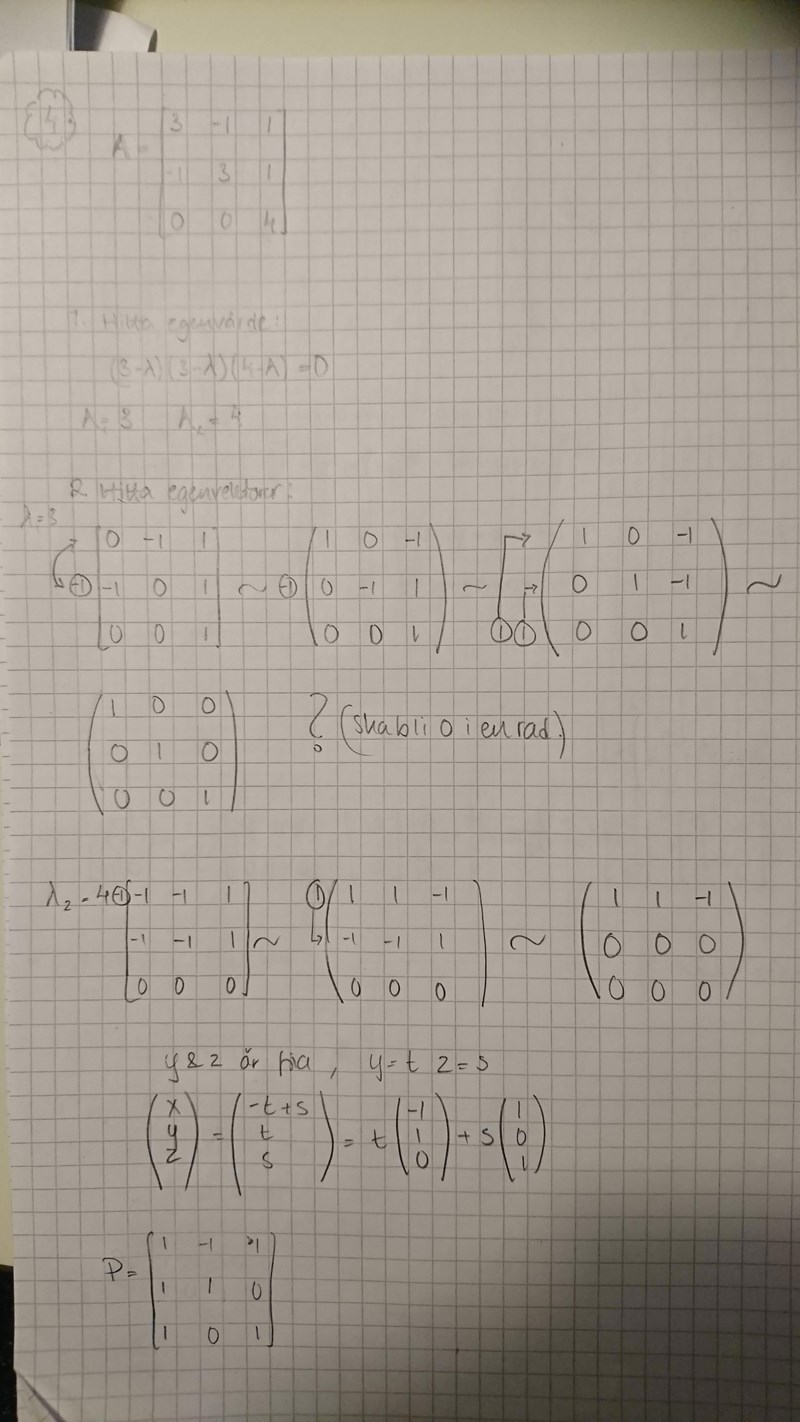 4
A = [3 -1 1
-1 3 1
0 0 4]
1. Hitta egenvärde:
(3-λ)(3-λ)(4-λ) = 0
λ₁ = 3 λ₂ = 4
2. Hitta egenvektorer:
λ=3
[0 -1 1] ~ (1 0 -1) ~ (1 0 -1) ~
(-1) [-1 0 1] (-1) (0 -1 1) (0 1 -1)
[0 0 1] (0 0 1) (1) (1) (0 0 1)
(1 0 0
0 1 0
0 0 1)
? (ska bli 0 i en rad)
λ₂ = 4 (-1) [-1 -1 1] ~ (1) (1 1 -1) ~ (1 1 -1)
[-1 -1 1] (-1 -1 1) (0 0 0)
[0 0 0] (0 0 0) (0 0 0)
y & z är fria, y=t z=s
(x y z) = (-t+s t s) = t(-1 1 0) + s(1 0 1)
P = [1 -1 1
1 1 0
1 0 1]